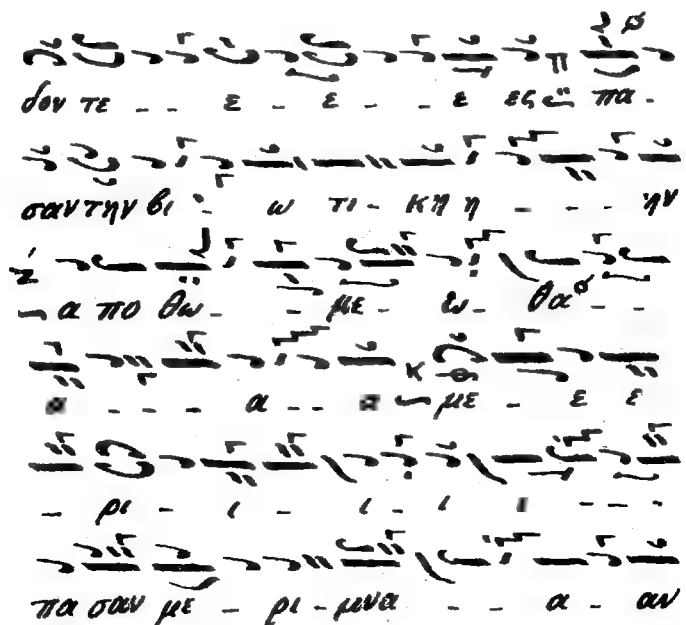 δον τε - - ε - ε - - ε ες πα -
σαν την βι - ω τι - κη η - - - ην
α πο θω - - με - ω - θα - -
α - - - - α - - α με - ε ε
- ρι - ι - ι - ι ι - - -
πα σαν με - ρι - μνα - - - α - αν